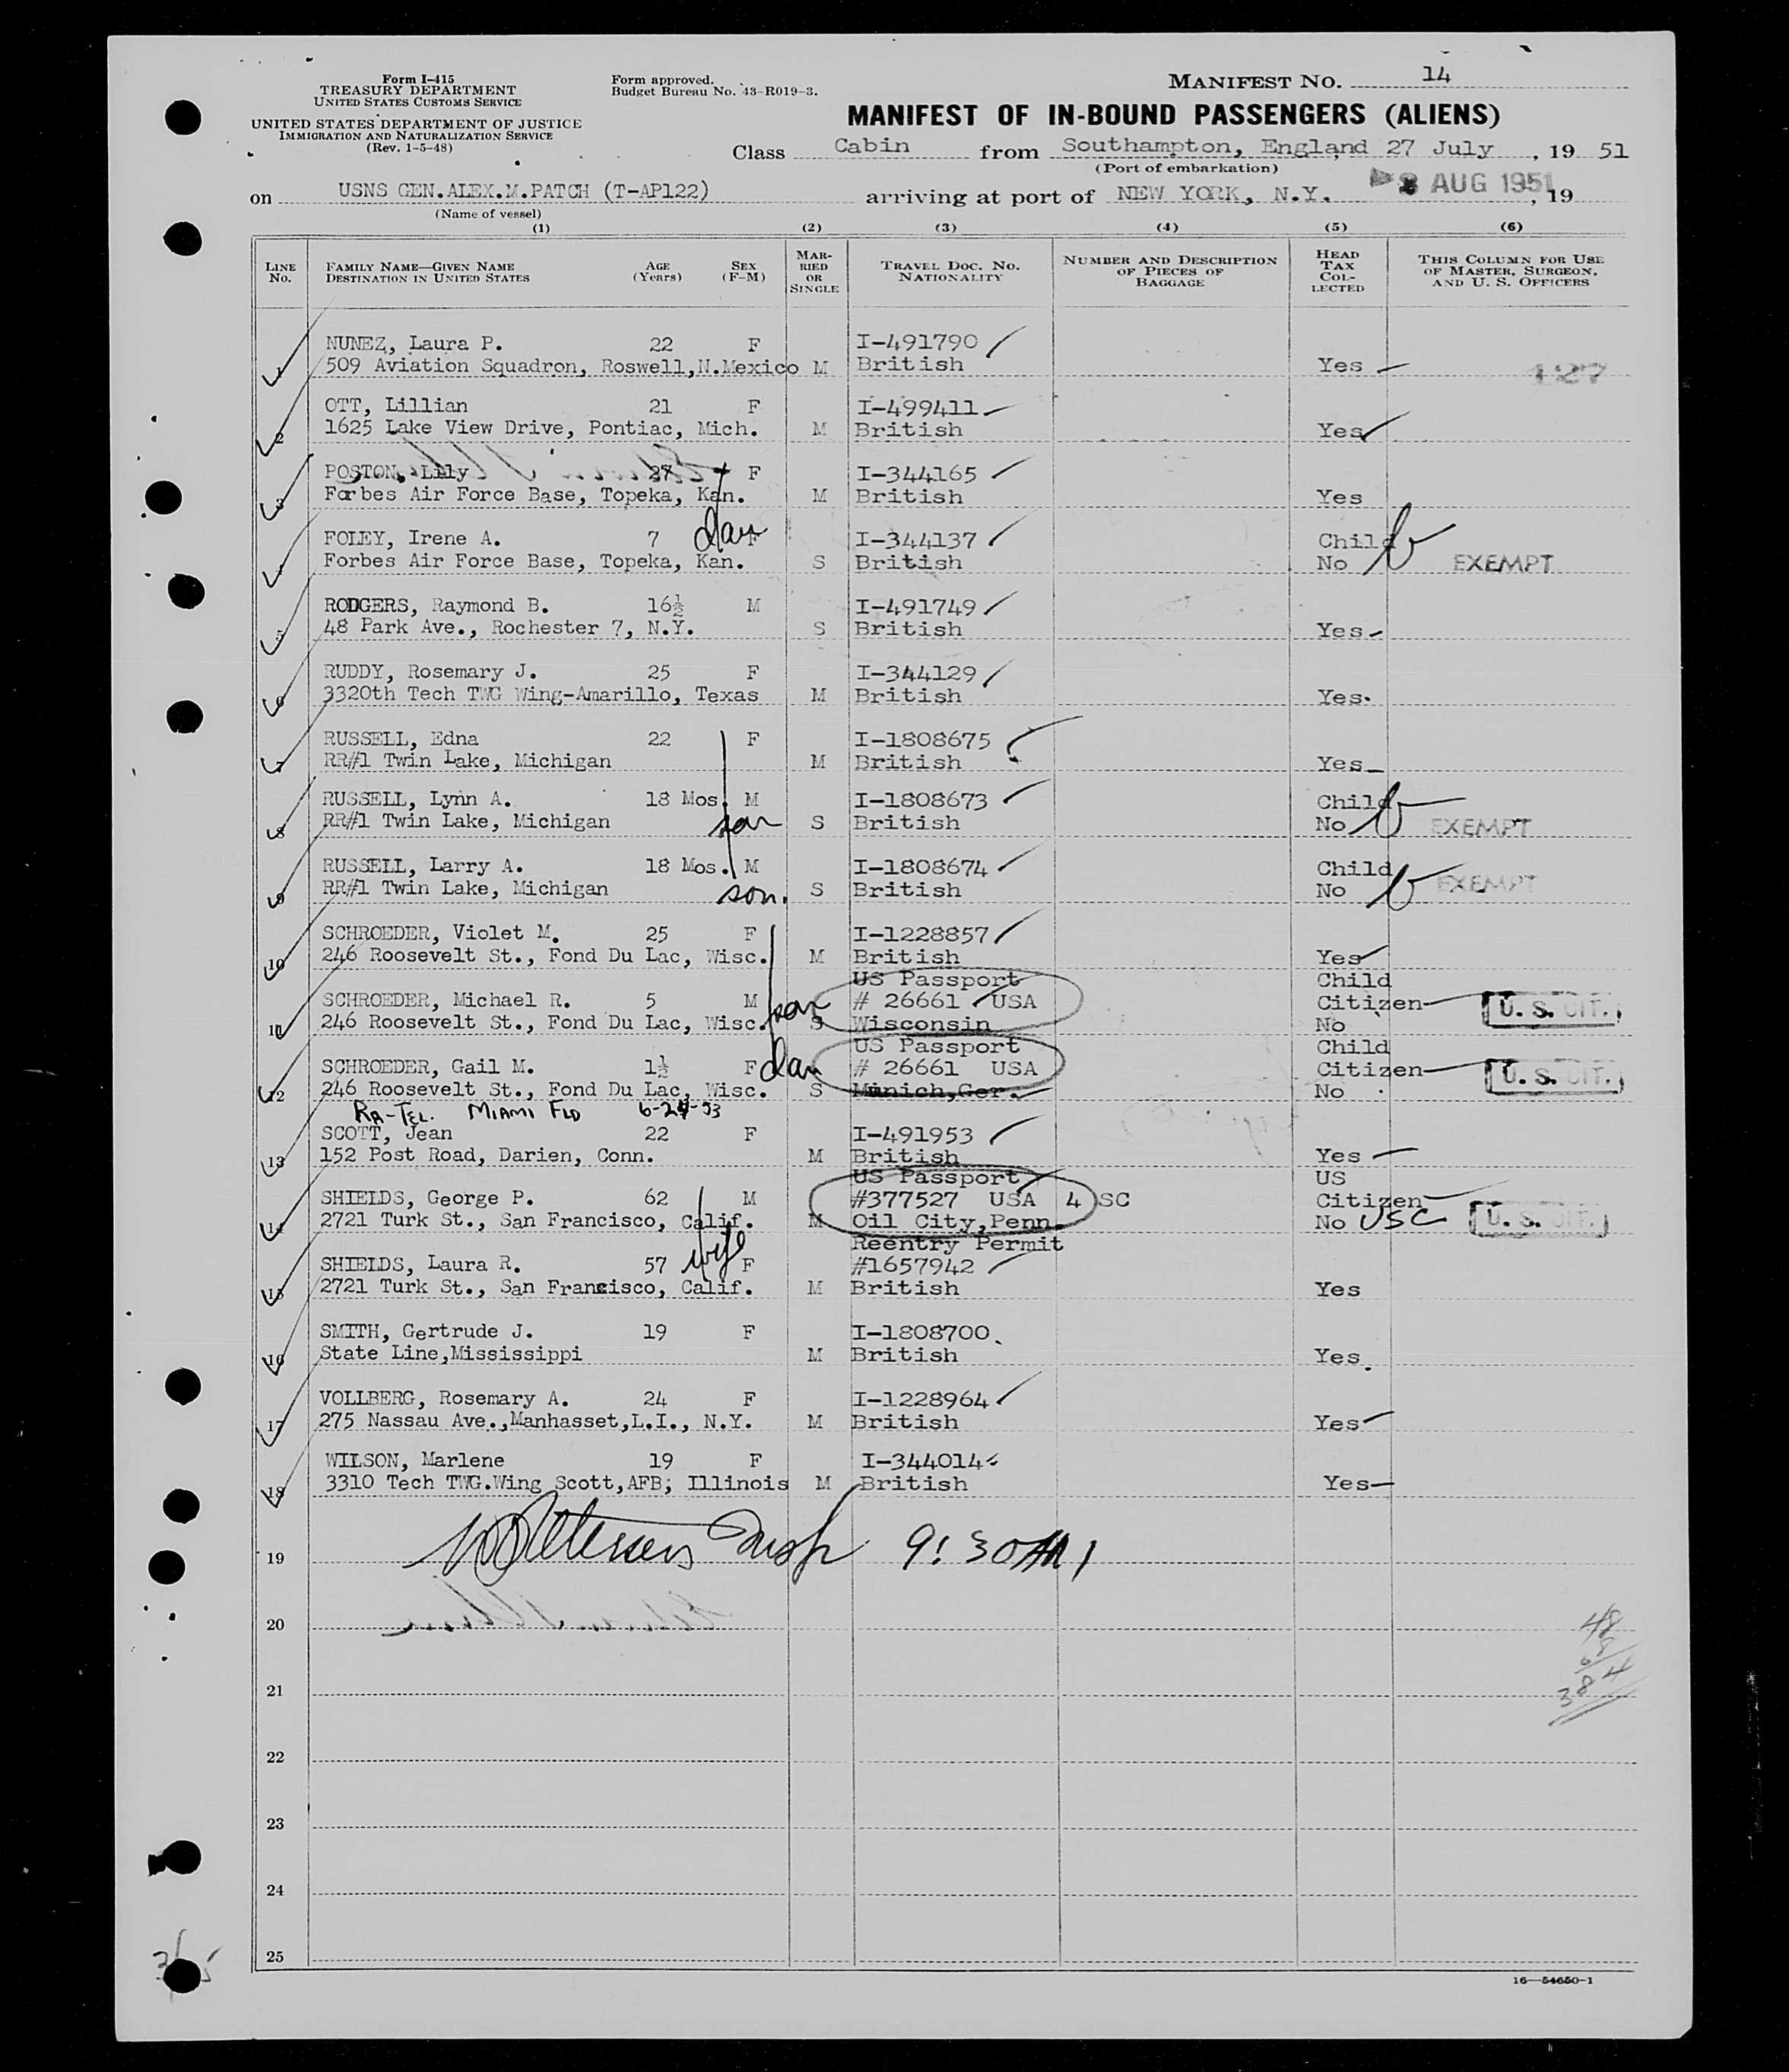 Form I-415
TREASURY DEPARTMENT
UNITED STATES CUSTOMS SERVICE
UNITED STATES DEPARTMENT OF JUSTICE
IMMIGRATION AND NATURALIZATION SERVICE
(Rev. 1-5-48)
Form approved.
Budget Bureau No. 43-R019-3.
MANIFEST NO. 14
MANIFEST OF IN-BOUND PASSENGERS (ALIENS)
Class Cabin from Southampton, England 27 July, 19 51
(Port of embarkation)
on USNS GEN.ALEX.M.PATCH (T-AP122) arriving at port of NEW YORK, N.Y. AUG 1951, 19
(Name of vessel)
(1) (2) (3) (4) (5) (6)
LINE No.
FAMILY NAME—GIVEN NAME DESTINATION IN UNITED STATES
AGE (Years)
SEX (F-M)
MARRIED OR SINGLE
TRAVEL DOC. NO. NATIONALITY
NUMBER AND DESCRIPTION OF PIECES OF BAGGAGE
HEAD TAX COLLECTED
THIS COLUMN FOR USE OF MASTER, SURGEON, AND U. S. OFFICERS
NUNEZ, Laura P. 22 F I-491790
1 509 Aviation Squadron, Roswell,N.Mexico M British Yes 127
OTT, Lillian 21 F I-499411
2 1625 Lake View Drive, Pontiac, Mich. M British Yes
POSTON, Lily 27 F I-344165
3 Forbes Air Force Base, Topeka, Kan. M British Yes
FOLEY, Irene A. 7 dau F I-344137 Child
4 Forbes Air Force Base, Topeka, Kan. S British No EXEMPT
RODGERS, Raymond B. 16½ M I-491749
5 48 Park Ave., Rochester 7, N.Y. S British Yes
RUDDY, Rosemary J. 25 F I-344129
6 3320th Tech TWG Wing-Amarillo, Texas M British Yes
RUSSELL, Edna 22 F I-1808675
7 RR#1 Twin Lake, Michigan M British Yes
RUSSELL, Lynn A. 18 Mos. M I-1808673 Child
8 RR#1 Twin Lake, Michigan son S British No EXEMPT
RUSSELL, Larry A. 18 Mos. M I-1808674 Child
9 RR#1 Twin Lake, Michigan son. S British No EXEMPT
SCHROEDER, Violet M. 25 F I-1228857
10 246 Roosevelt St., Fond Du Lac, Wisc. M British Yes
US Passport Child
SCHROEDER, Michael R. 5 M son # 26661 USA Citizen U. S. CIT.
11 246 Roosevelt St., Fond Du Lac, Wisc. S Wisconsin No
US Passport Child
SCHROEDER, Gail M. 1½ F dau # 26661 USA Citizen U. S. CIT.
12 246 Roosevelt St., Fond Du Lac, Wisc. S Munich,Ger. No
RA-TEL. MIAMI FLD 6-24-53
SCOTT, Jean 22 F I-491953
13 152 Post Road, Darien, Conn. M British Yes
US Passport US
SHIELDS, George P. 62 M #377527 USA 4 SC Citizen
14 2721 Turk St., San Francisco, Calif. M Oil City,Penn. No USC U. S. CIT.
Reentry Permit
SHIELDS, Laura R. 57 wife F #1657942
15 2721 Turk St., San Francisco, Calif. M British Yes
SMITH, Gertrude J. 19 F I-1808700
16 State Line,Mississippi M British Yes
VOLLBERG, Rosemary A. 24 F I-1228964
17 275 Nassau Ave.,Manhasset,L.I., N.Y. M British Yes
WILSON, Marlene 19 F I-344014
18 3310 Tech TWG.Wing Scott,AFB; Illinois M British Yes
19 9:30AM
20 48
8
21 384
22
23
24
25
16—54650-1